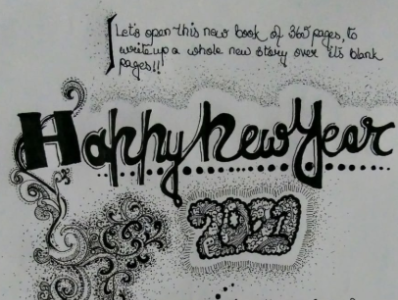 Let's open this new book of 365 pages, to
write up a whole new story over it's blank
pages!!
Happy New Year